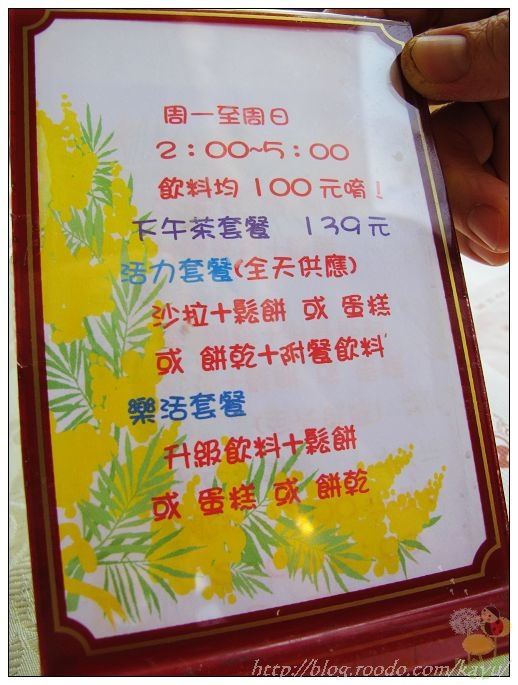 周一至周日
2：00~5：00
飲料均 100 元唷！
下午茶套餐 139 元
活力套餐(全天供應)
沙拉+鬆餅 或 蛋糕
或 餅乾+附餐飲料
樂活套餐
升級飲料+鬆餅
或 蛋糕 或 餅乾
http://blog.roodo.com/kayu/